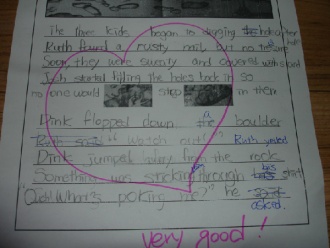 The three kids began to digging the holes for
Ruth found a rusty nail, but no treasure
Soon they were sweaty and covered with sand
Josh started filling the holes back in so
no one would step in them
Dink flopped down the a boulder
Ruth said "Watch out!" Ruth yelled
Dink jumped away from the rock
Something was sticking through his shirt
"Ouch! What's poking me?" he said
asked.
very good!